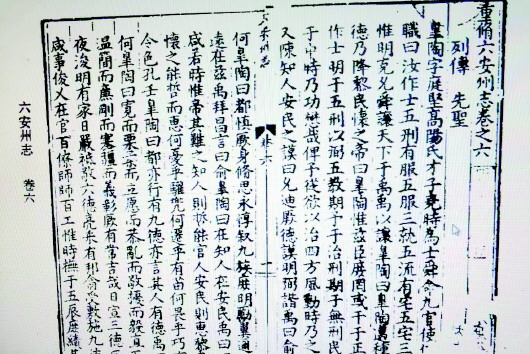 重修六安州志卷之六
列傳 先聖
皐陶字庭堅高陽氏才子堯時為士舜命九官使仍
職曰汝作士五刑有服五服三就五流有宅五宅三
惟明克允舜讓天下于禹禹以讓臯陶曰臯陶邁種
德乃降黎民懷之帝曰臯陶惟茲臣庶罔或干予正
作士明于五刑以弼五教期于予治刑期于無刑民
于中時乃功懋哉俾予從欲以治四方風動時乃之
又陳知人安民之謨曰允迪厥德謨明弼諧禹曰俞
六安州志
卷六
二
何臯陶曰都慎厥身修思永惇敘九族庶明勵翼邇
遠在茲禹拜昌言曰俞臯陶曰在知人在安民禹曰
咸若時惟帝其難之知人則哲能官人安民則惠黎
懷之能哲而惠何憂乎驩兜何遷乎有苗何畏乎巧
令色孔壬臯陶曰都亦行有九德亦言其人有德禹
何臯陶曰寬而栗柔而立愿而恭亂而敬擾而毅直
溫簡而廉剛而塞彊而義彰厥有常吉哉日宣三德
夜浚明有家日嚴祗敬六德亮采有邦翕受敷施九德
咸事俊乂在官百僚師師百工惟時撫于五辰庶績其
六安州志 卷六